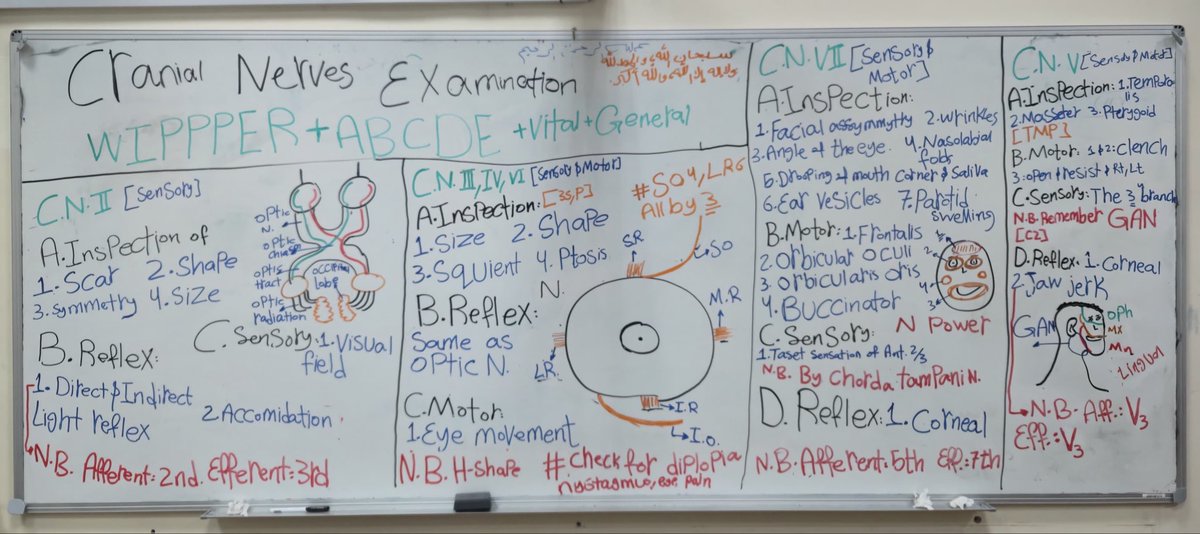 Cranial Nerves Examination
سبحان الله والحمد لله
ولا إله إلا الله والله أكبر
WIPPPER+ABCDE +Vital+General
C.N.II [Sensory]
A.Inspection of
1.Scar 2.Shape
3.symmetry 4.Size
B.Reflex:
1.Direct&Indirect
Light reflex
2.Accomidation
N.B. Afferent:2nd. Efferent:3rd
optic
N.
optic
chiasm
optic
tract
optic
radiation
occipital
lobe
C.Sensory:1.Visual
field
C.N.III,IV,VI [Sensory&Motor]
A.Inspection: [3S,P]
1.Size 2.Shape
3.Squient 4.Ptosis
N.
B.Reflex:
Same as
optic N.
C.Motor:
1.Eye movement
N.B. H-shape # check for diplopia
nystagmus, eye pain
#SO4, LR6
All by 3
SR
SO
M.R
LR
I.R
I.O.
C.N.VII [Sensory&
Motor]
A.Inspection:
1.Facial assymytty 2.wrinkles
3.Angle of the eye. 4.Nasolabial
folds
5.Drooping of mouth corner & Saliva
6.Ear vesicles 7.Parotid
swelling
B.Motor: 1.Frontalis
2.orbicular oculi
3.orbicularis oris
4.Buccinator
1
2
4
3
C.Sensory: N Power
1.Taset sensation of Ant. 2/3
N.B. By Chorda tampani N.
D.Reflex:1.Corneal
N.B. Afferent:5th Eff:7th
C.N.V [Sensory&Motor]
A.Inspection: 1.Tempora
lis
2.Masseter 3.Pterygoid
[TMP]
B.Motor: 1&2:clench
3:open&resist & Rt,Lt
C.Sensory: The 3 branch
N.B. Remember GAN
[C2]
D.Reflex: 1.Corneal
2.Jaw jerk
GAN
Oph
Mx
Mn
Lingual
N.B. Aff.:V3
Eff.:V3